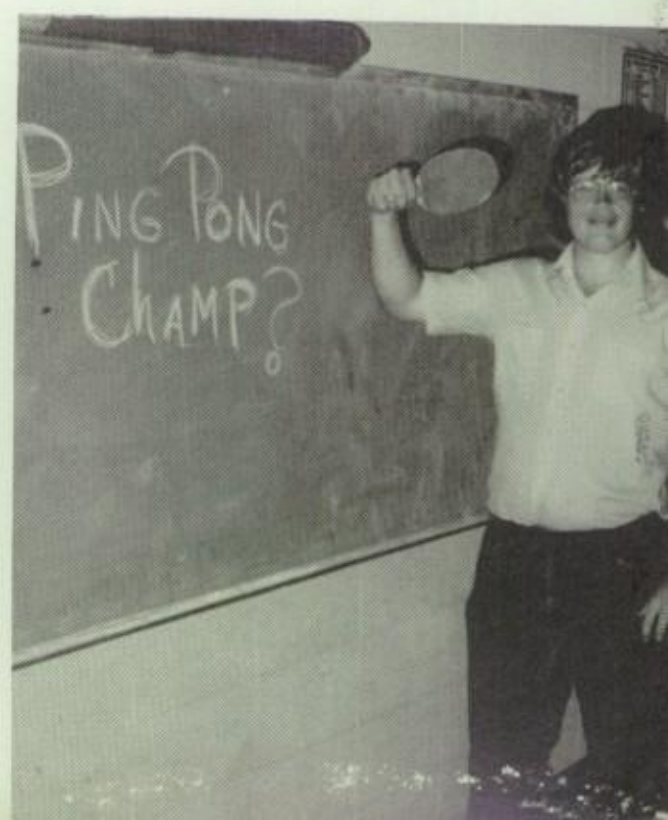 PING PONG
ChAMP?